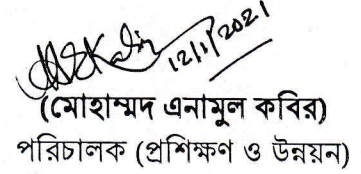 12/1/2021
(মোহাম্মদ এনামুল কবির)
পরিচালক (প্রশিক্ষণ ও উন্নয়ন)